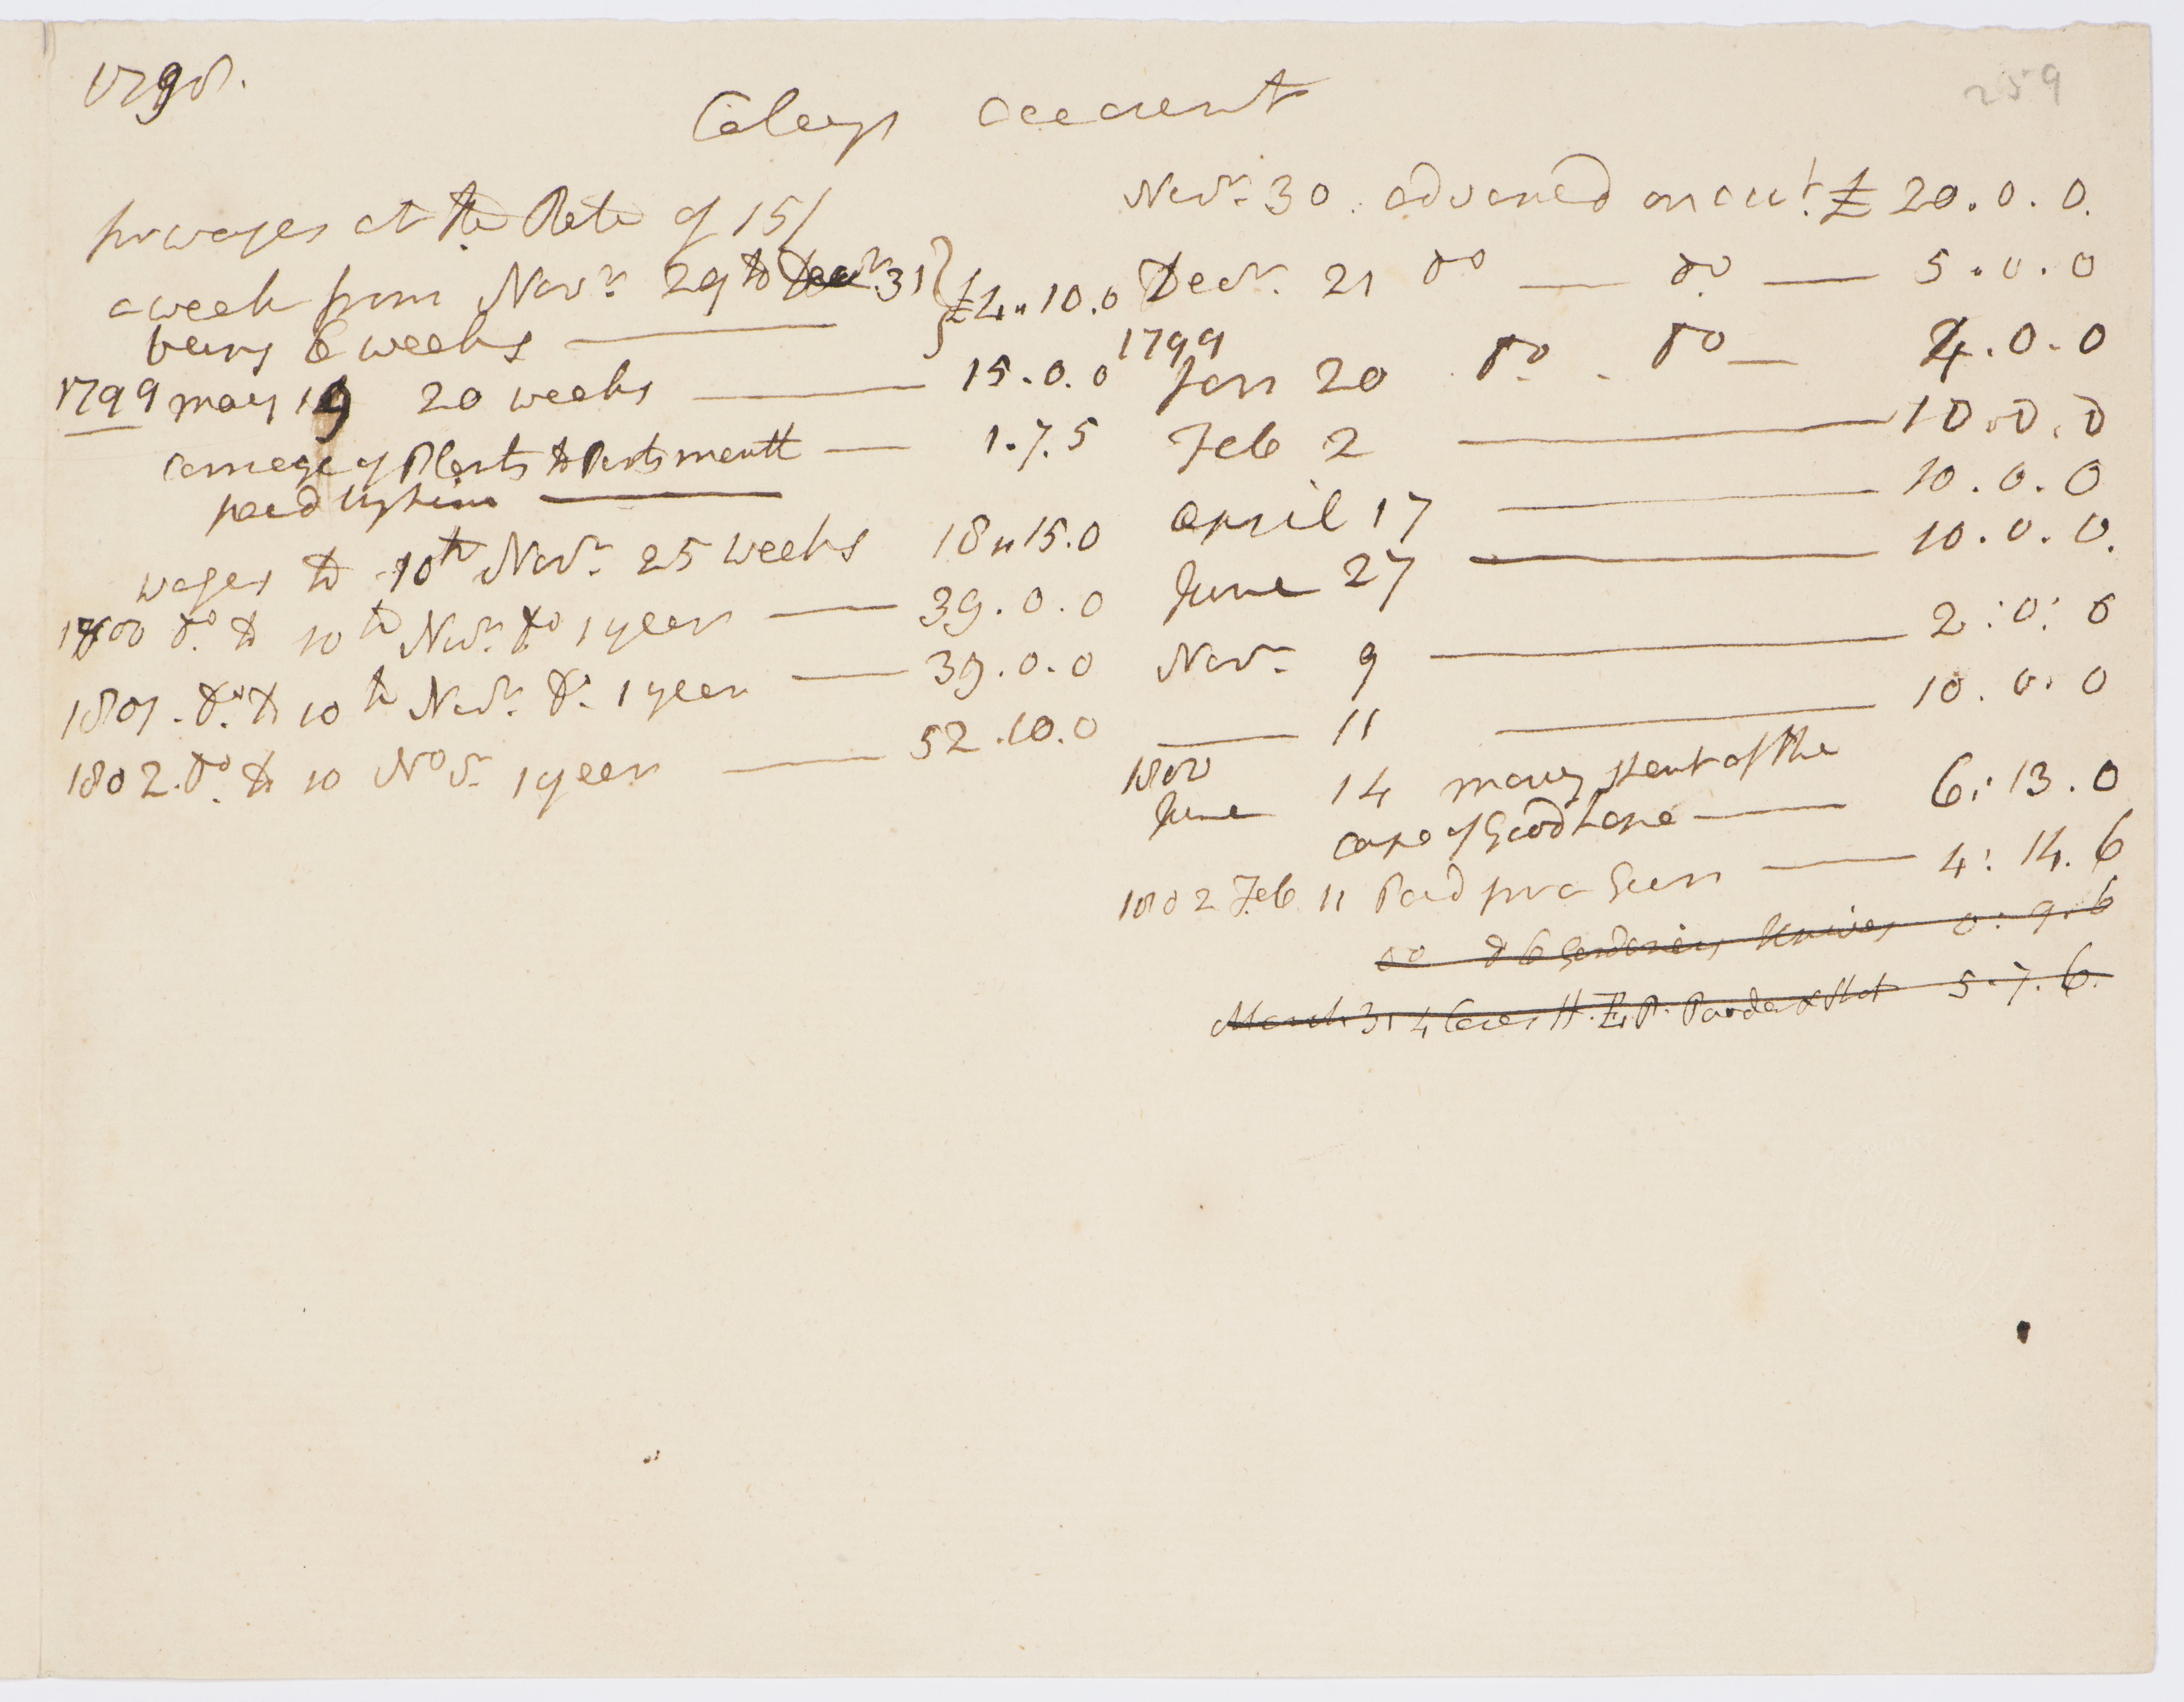 1798.
259
Caleys account
for wages at the Rate of 15/
a week from Novr. 29 to Decr. 31
being 6 weeks £4 " 10 . 0
1799 may 19 20 weeks 15 . 0 . 0
carriage of Plants to Portsmouth 1 . 7 . 5
paid by him
wages to 10th Novr. 25 weeks 18 " 15 . 0
1800 do. to 10th Novr. do 1 year 39 . 0 . 0
1801 . do. to 10th Novr. do. 1 year 39 . 0 . 0
1802 . do. to 10 Novr. 1 year 52 . 10 . 0
Novr. 30 . advanced on acct. £ 20 . 0 . 0.
Decr. 21 do do. 5 . 0 . 0
1799
Jan 20 do. do 4 . 0 . 0
Feb 2 10 . 0 . 0
april 17 10 . 0 . 0
June 27 10 . 0 . 0.
Novr. 9 2 : 0 : 0
11 10 . 0 . 0
1800
June 14 mony spent at the
cape of Good hope 6 : 13 . 0
1802 Feb 11 Paid for a Gun 4 : 14 . 6
do to 6 Gardeners Knives 0 : 9 . 6
March 31 4 Cases H. E. P. Powder & Shot 5 . 7 . 6.